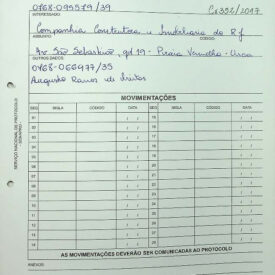 0768-095579/39
INTERESSADO
Companhia Construtora e Imobiliária do RJ
ASSUNTO
Av São Sebastião, qd 19 - Praia Vermelha - Urca
OUTROS DADOS
0768-066977/35
Augusto Ramos de Freitas
MOVIMENTAÇÕES
SEQ SIGLA CÓDIGO DATA SEQ SIGLA CÓDIGO DATA
01 / / 15 / /
02 / / 16 / /
03 / / 17 / /
04 / / 18 / /
05 / / 19 / /
06 / / 20 / /
07 / / 21 / /
08 / / 22 / /
09 / / 23 / /
10 / / 24 / /
11 / / 25 / /
12 / / 26 / /
13 / / 27 / /
14 / / 28 / /
AS MOVIMENTAÇÕES DEVERÃO SER COMUNICADAS AO PROTOCOLO
ANEXOS
SERVIÇO NACIONAL DE PROTOCOLO